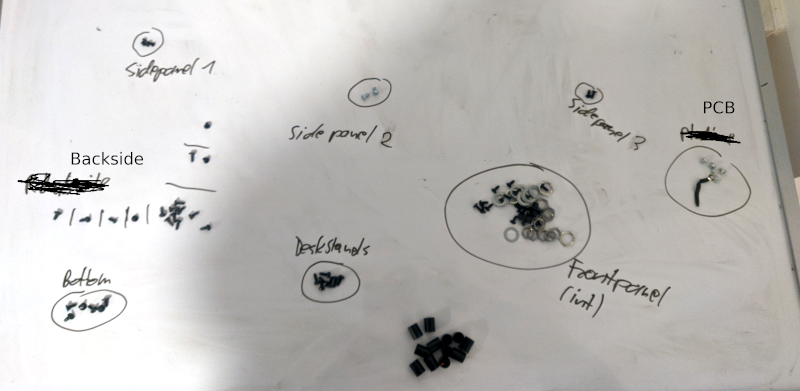 Sidepanel 1
Side panel 2
Sidepanel 3
PCB
Backside
Deskstands
Bottom
Frontpanel
(int)